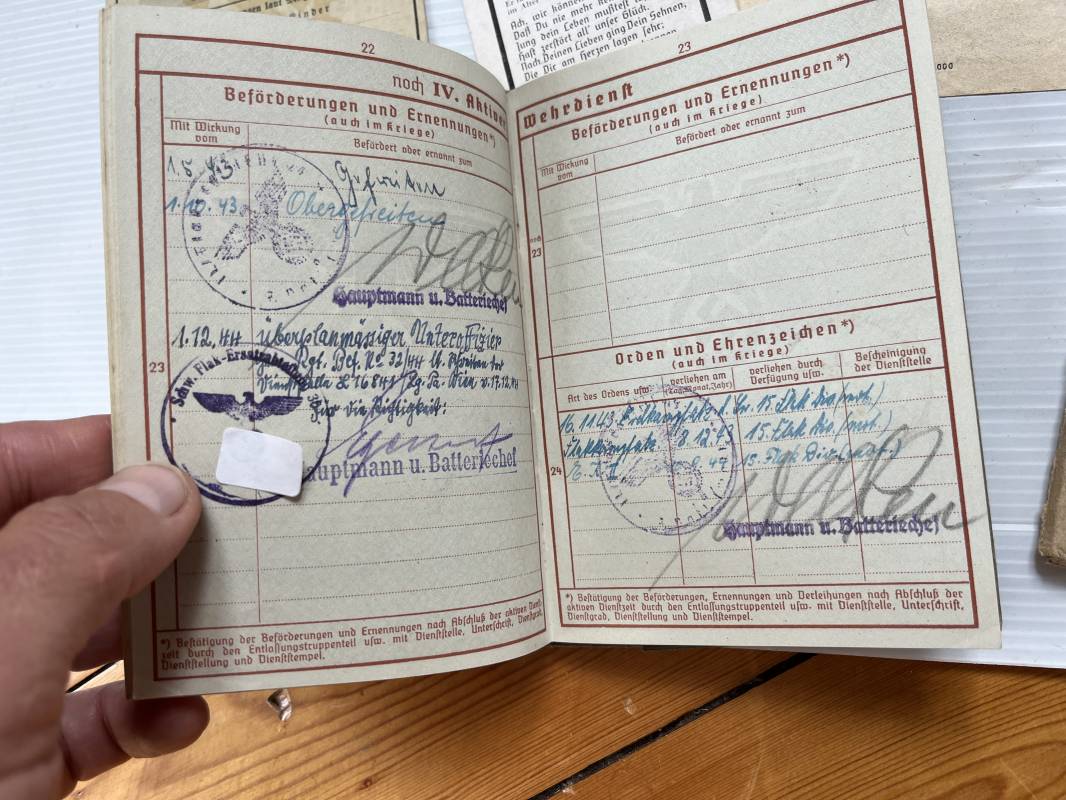 Kinder
Ach, wir können
Daß Du nie mehr
Jung dein Leben mußtest
Hast zerstört all' unser Glück.
Nach Deinen Lieben ging Dein Sehnen,
Die Dir am Herzen lagen sehr:
22
noch IV. Aktiver
Beförderungen und Ernennungen*)
(auch im Kriege)
Mit Wirkung vom
Befördert oder ernannt zum
1.5. 43 Gefreiten
1.10. 43 Obergefreiten
Hauptmann u. Batteriechef
1.12.44 Überplanmässiger Unteroffizier
23
Schw. Flak-Ersatzabteilung
Für die Richtigkeit:
Hauptmann u. Batteriechef
*) Bestätigung der Beförderungen und Ernennungen nach Abschluß der aktiven Dienst-
zeit durch den Entlassungstruppenteil usw. mit Dienststelle, Unterschrift, Dienstgrad,
Dienststellung und Dienststempel.
23
Wehrdienst
Beförderungen und Ernennungen*)
(auch im Kriege)
Mit Wirkung vom
Befördert oder ernannt zum
noch
23
Orden und Ehrenzeichen*)
(auch im Kriege)
Art des Ordens usw.
verliehen am
(Tag, Monat, Jahr)
verliehen durch
Verfügung usw.
Bescheinigung
der Dienststelle
15. Flak Div. (mot.)
8 12 43 15. Flak Div. (mot.)
24
15. Flak Div. (mot.)
Hauptmann u. Batteriechef
*) Bestätigung der Beförderungen, Ernennungen und Verleihungen nach Abschluß der
aktiven Dienstzeit durch den Entlassungstruppenteil usw. mit Dienststelle, Unterschrift,
Dienstgrad, Dienststellung und Dienststempel.